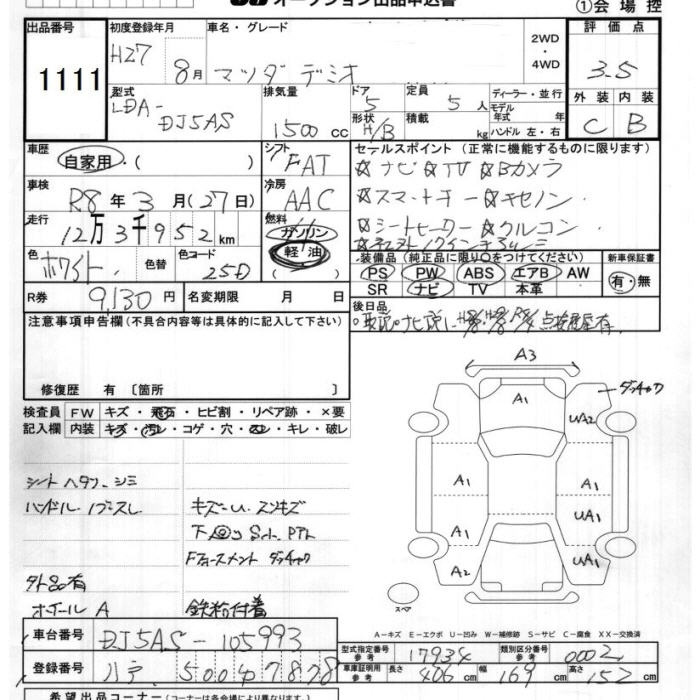 オークション出品申込書
①会場控
出品番号 初度登録年月 車名・グレード 2WD・4WD 評価点
1111 H27 8月 マツダ デミオ 3.5
型式 排気量 ドア 定員 ディーラー・並行 外装 内装
LDA-DJ5AS 1500cc 5 5人 モデル年式 年式 C B
形状 H/B 積載 kg ハンドル 左・右
車歴 シフト セールスポイント (正常に機能するものに限ります)
自家用・( ) FAT ☆ナビ ☆TV ☆Bカメラ
車検 冷房 ☆スマートキー ☆キセノン
R8年3月(27日) AAC
走行 燃料 ☆シートヒーター ☆クルコン
12万3千952km ガソリン
軽油
色 色替 色コード 装備品 (純正品に限り○をつけてください) 新車保証書
ホワイト 25D PS PW ABS エアB AW 有・無
SR ナビ TV 本革
R券 9,130円 名変期限 月 日
後日品
注意事項申告欄(不具合内容等は具体的に記入して下さい)
修復歴 有 〔箇所 〕
検査員 FW キズ・飛石・ヒビ割・リペア跡・×要
記入欄 内装 キズ・汚レ・コゲ・穴・スレ・キレ・破レ
A3
A1
UA2
A1 A1
UA1
A1
UA1
A2
スペア
シート ヘタリ シミ
ハンドル ノブスレ
外品有
ホイールA
鉄粉付着
A-キズ E-エクボ U-凹み W-補修跡 S-サビ C-腐食 XX-交換済
車台番号 DJ5AS-105993
型式指定番号 参考 17934 類別区分番号 参考 0002
登録番号 5004 7878
車庫証明用 参考 長さ 406cm 幅 169cm 高さ 152cm
希望出品コーナー(出品コーナーは各会場により異なります)